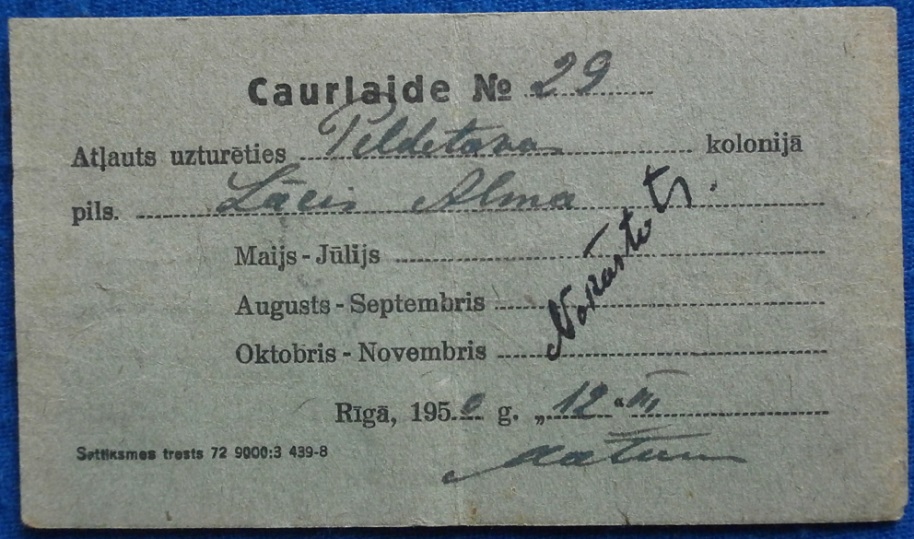 Caurlaide № 29
Atļauts uzturēties Peldētava kolonijā
pils. Lācis Alma
Maijs - Jūlijs
Augusts - Septembris
Oktobris - Novembris
Rīgā, 1950 g. „12" VI
Satiksmes trests 72 9000:3 439-8